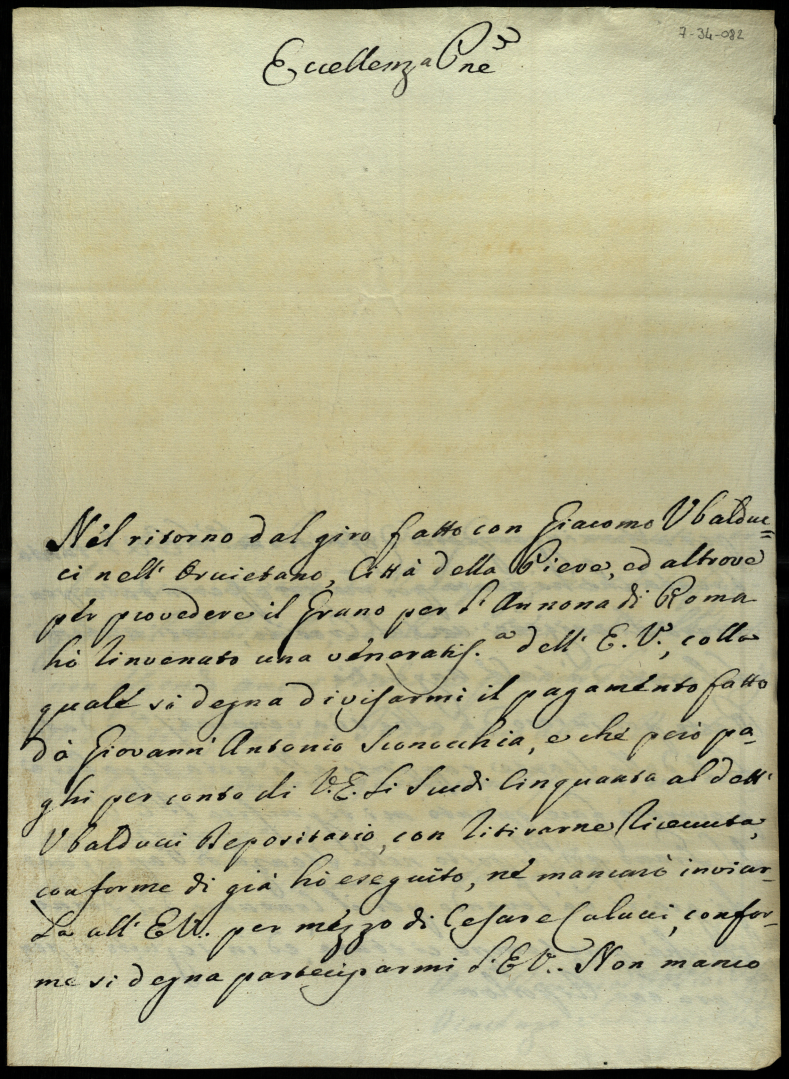 7-34-082
Eccellenza Pne
Nél ritorno dal giro fatto con Giacomo Ubalduc=
ci nell' Orvietano, Città della Pieve, ed altrove
pér provedere il Grano per l'Annona di Roma
hò rinvenuto una véneratis.a dell' E. V., colla
qualé si degna divisarmi il pagaménto fatto
dà Giovanni Antonio Sconocchia, e ché però pa-
ghi per conto di V. E. li Scudi Cinquanta al dett'
Ubalducci Depositario, con ritirarne ricevuta,
conforme di già hò eseguito, né mancarò inviar-
la all' E. V. per mézzo di Cesare Calucci, confor-
me si degna parteciparmi l'E. V.. Non manco